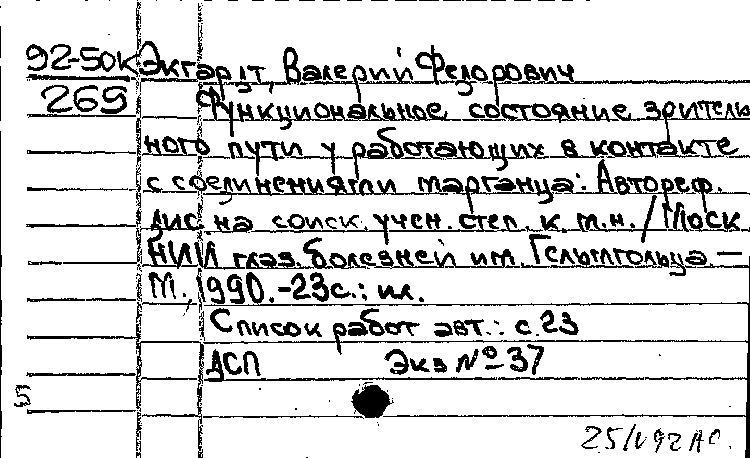 92-50к Экгардт, Валерий Федорович
269 Функциональное состояние зритель
ного пути у работающих в контакте
с соединениями марганца: Автореф.
дис. на соиск. учен. степ. к.м.н. / Моск
НИИ глаз. болезней им. Гельмгольца. —
М., 1990. - 23с.: ил.
Список работ авт.: с. 23
ДСП Экз № 37
5
25/V 92